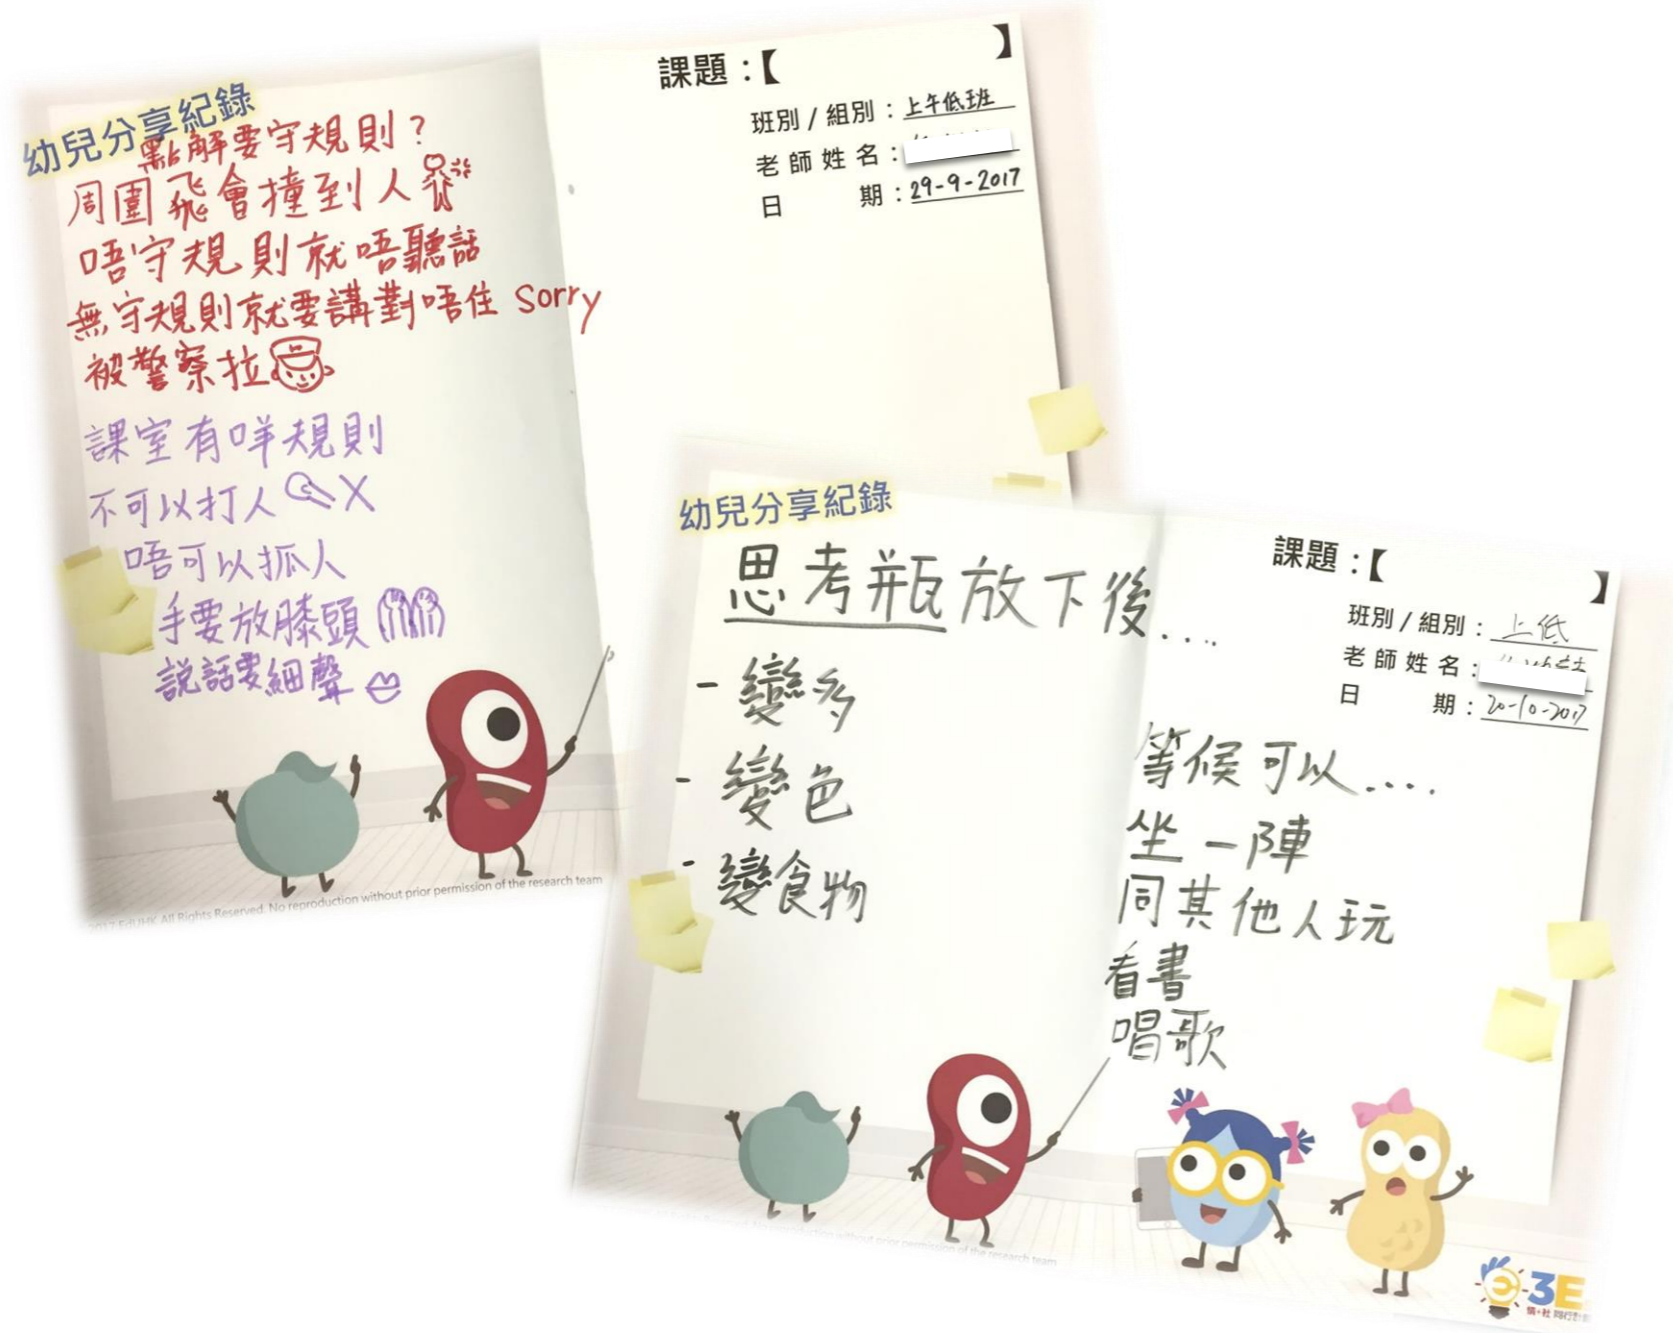 幼兒分享紀錄
點解要守規則？
周圍飛會撞到人
唔守規則就唔聽話
無守規則就要講對唔住 Sorry
被警察拉
課室有咩規則
不可以打人 X
唔可以抓人
手要放膝頭
說話要細聲
課題：【 】
班別 / 組別：上午低班
老師姓名：
日 期：29-9-2017
2017 EdUHK All Rights Reserved. No reproduction without prior permission of the research team
幼兒分享紀錄
思考瓶放下後....
- 變多
- 變色
- 變食物
課題：【 】
班別 / 組別：上低
老師姓名：
日 期：20-10-2017
等候可以....
坐一陣
同其他人玩
看書
唱歌
without prior permission of the research team
3E
情·社 同行計劃